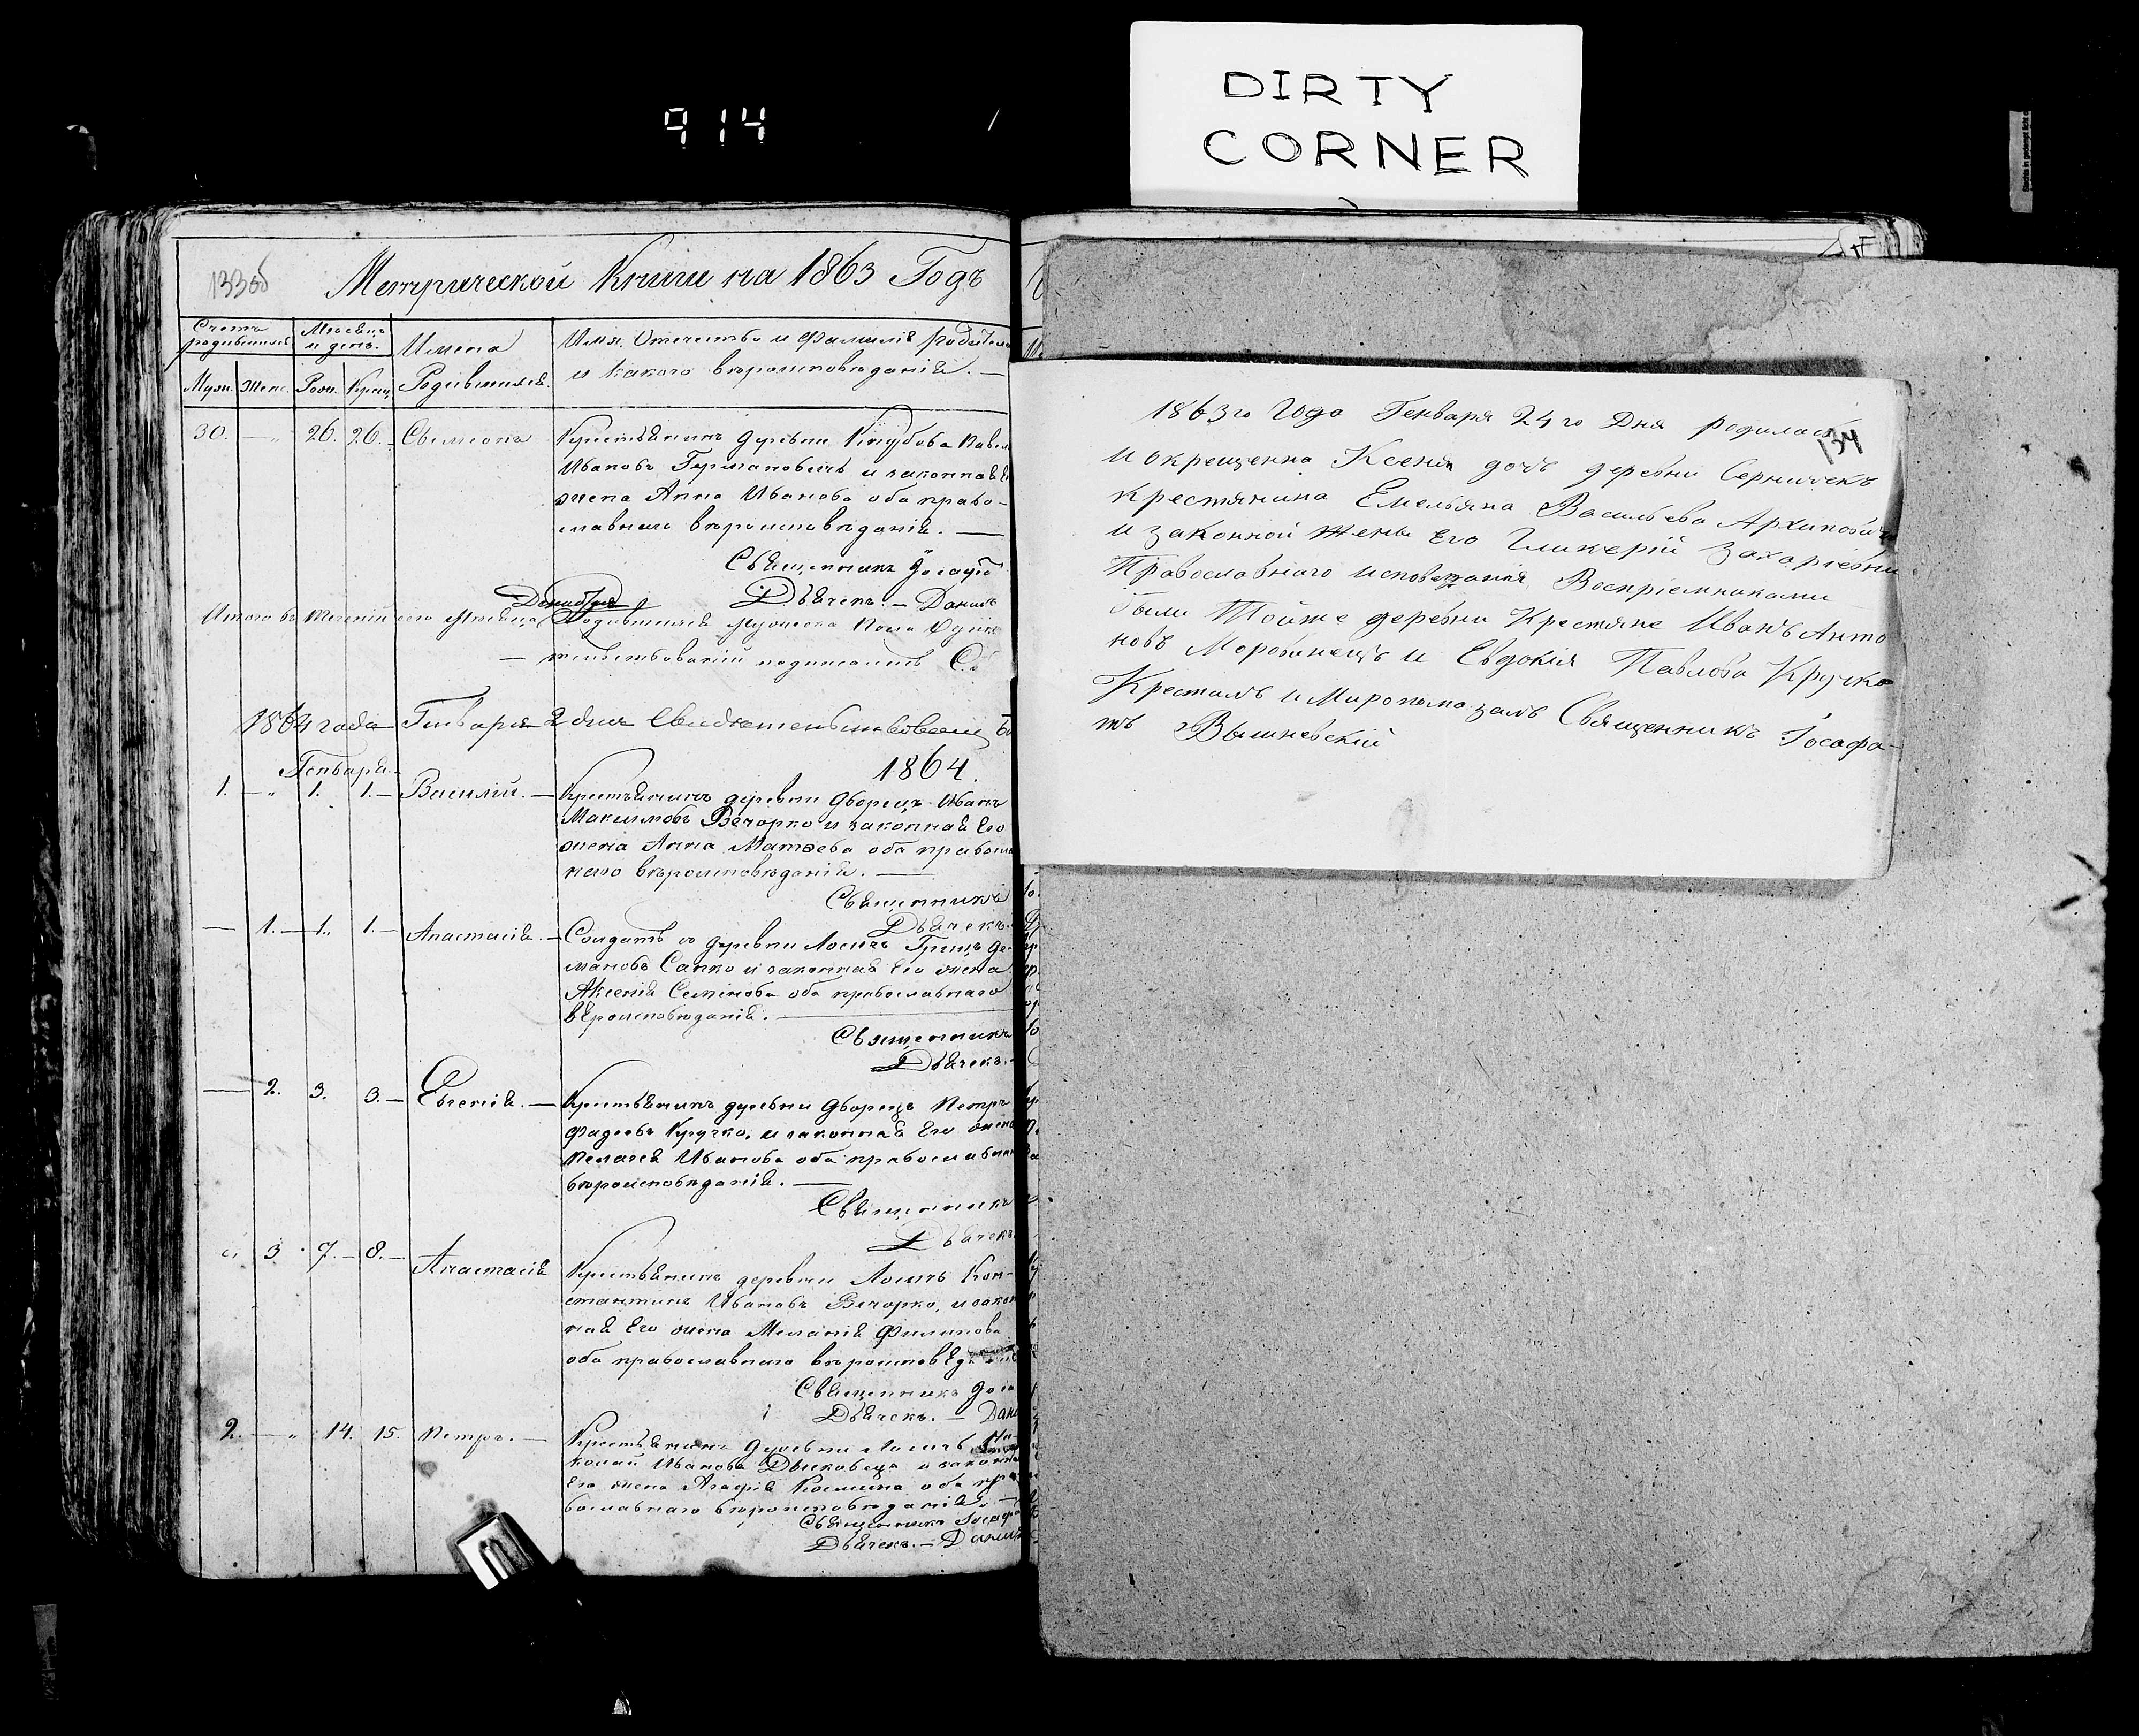 DIRTY
CORNER
914
133об
Метрической Книги на 1863 Годъ
Счетъ родившихся
Мѣсяцъ и день.
Имена Родившихся.
Имя, Отечество и Фамилія родителей
и какого вѣроисповѣданія. —
Муж. Женс. Рожд. Крещ.
30. — „ 26. 26. Свемеонъ
Крестьянинъ деревни Павел
Ивановъ Германовичъ и законная Е
жена Анна Иванова оба право-
славнаго вѣроисповѣданія. —
Священникъ Іосаф
Дьячекъ. — Данил
Декабря
Итого въ теченіи сего Мѣсяца Родившихся мужеска пола
— тельствованіи подписались
1864 года Генваря 2 дня Свидетельствовалъ
Генваря. 1864.
1. — „ 1. 1. — Василій. —
Крестьянинъ деревни Дворецъ Иванъ
Максимовъ Вечорко и законная Его
жена Анна Матѳева оба правосла
наго вѣроисповѣданія. —
Священникъ
Дьячекъ.
— 1. — 1. 1. — Анастасія. —
Солдатъ съ деревни Лосичъ Гришъ Де-
мановъ Сапко и законная Его жена
Аксенія Семенова оба православнаго
вѣроисповѣданія. —
Священникъ
Дьячекъ. —
— 2. 3. 3. — Евгенія. —
Крестьянинъ деревни Дворецъ Петръ
Фадеевъ Кручко, и законная Его жена
Пелагея Иванова оба православна
вѣроисповѣданія. —
Священникъ
Дьячекъ.
„ 3. 7. — 8. — Анастасія
Крестьянинъ деревни Лосичъ Кон-
стантинъ Ивановъ Вечорко, и закон
ная Его жена Меланія Филипова
оба православнаго вѣроисповѣд
Священникъ Іоса
Дьячекъ. — Дани
2. — „ 14. 15. Петръ. —
Крестьянинъ деревни Лосичъ Ни-
колай Ивановъ Дыковецъ и законн
Его жена Агафія Космина оба пра
вославнаго вѣроисповѣданія. —
Священникъ Іосафа
Дьячекъ. — Данил
134
1863го Года Генваря 24го Дня родилась
и окрещенна Ксенія дочь деревни Серничекъ
крестянина Емельяна Васильева Архипович
и законной жены Его Гликерій Захаріевны
Православнаго исповезданія Воспріемниками
были Тойже деревни Крестяне Иванъ Анто
новъ Моробинецъ и Евдокія Павлова Кручко
Крестилъ и Миропомазалъ Священникъ Іосафа-
тъ Вышневскій